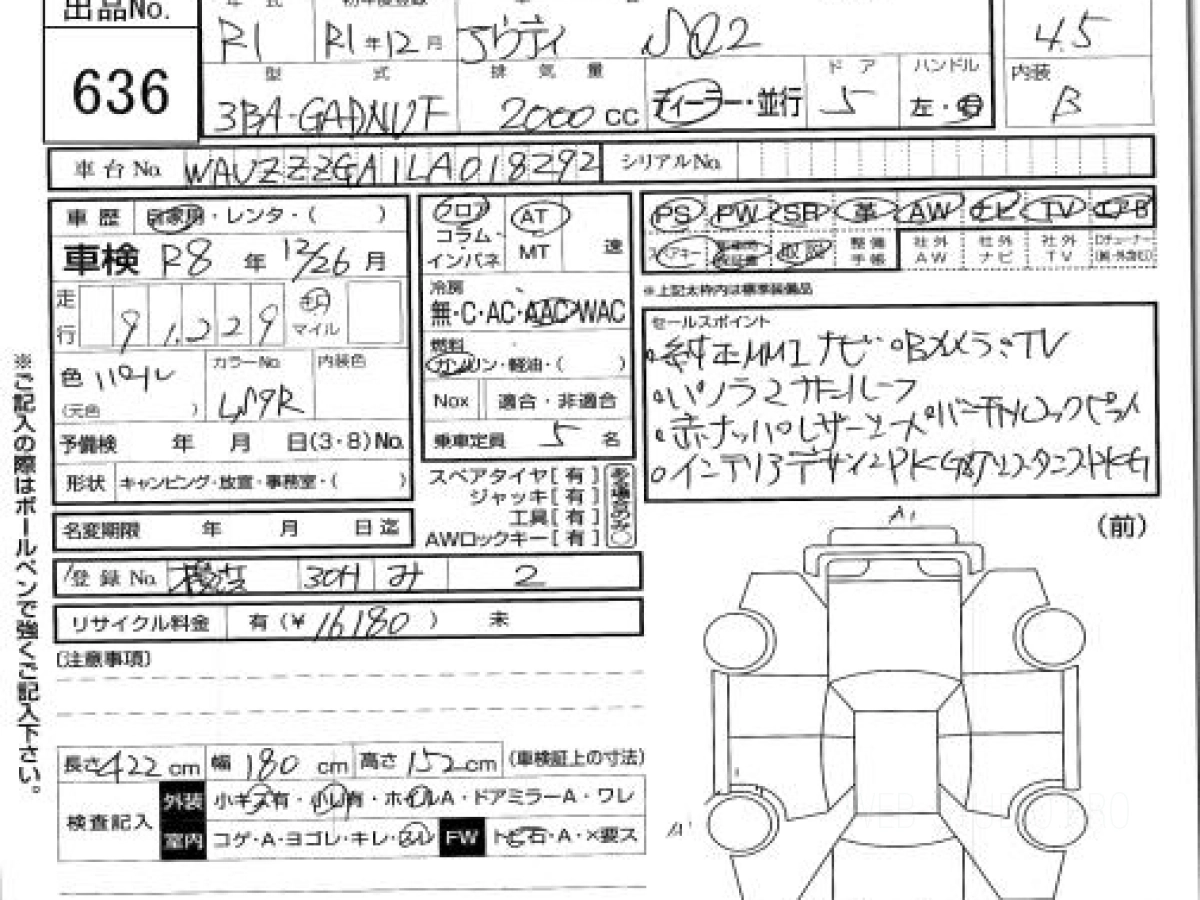 出品No.
636
R1 R1年12月 アウディ SQ2
4.5
型式 排気量 ドア ハンドル 内装
3BA-GADNUF 2000cc ディーラー・並行 5 左・右 B
車台No. WAUZZZGA1LA018292 シリアルNo.
車歴 自家用・レンタ・( )
車検 R8年12/26月
走行 91,229 キロ マイル
色 パール カラーNo. LS9R 内装色
(元色 )
予備検 年 月 日(3・8)No.
形状 キャンピング・放宣・事務室・( )
名変期限 年 月 日迄
フロア コラム・インパネ AT MT 速
冷房
無・C・AC・AAC・WAC
燃料
ガソリン・軽油・( )
Nox 適合・非適合
乗車定員 5 名
スペアタイヤ[有]
ジャッキ[有]
工具[有]
AWロックキー[有]
ある場合のみ○
PS PW SR 革 AW ナビ TV エアB
スペアキー 取説 整備手帳 社外AW 社外ナビ 社外TV
※上記太枠内は標準装備品
セールスポイント
純正MMIナビ Bカメラ TV
パノラマサンルーフ
赤ナッパレザーシート バーチャルコックピット
インテリアデザインPKG アシスタンスPKG
登録No. 横浜 301 み 2
リサイクル料金 有(¥16180) 未
[注意事項]
長さ422cm 幅180cm 高さ152cm (車検証上の寸法)
検査記入
外装 小キズ有・小凹有・ホイルA・ドアミラーA・ワレ
室内 コゲ・A・ヨゴレ・キレ・スレ FW トビ石・A・×要ス
A1
(前)
A1
※ご記入の際はボールペンで強くご記入下さい。